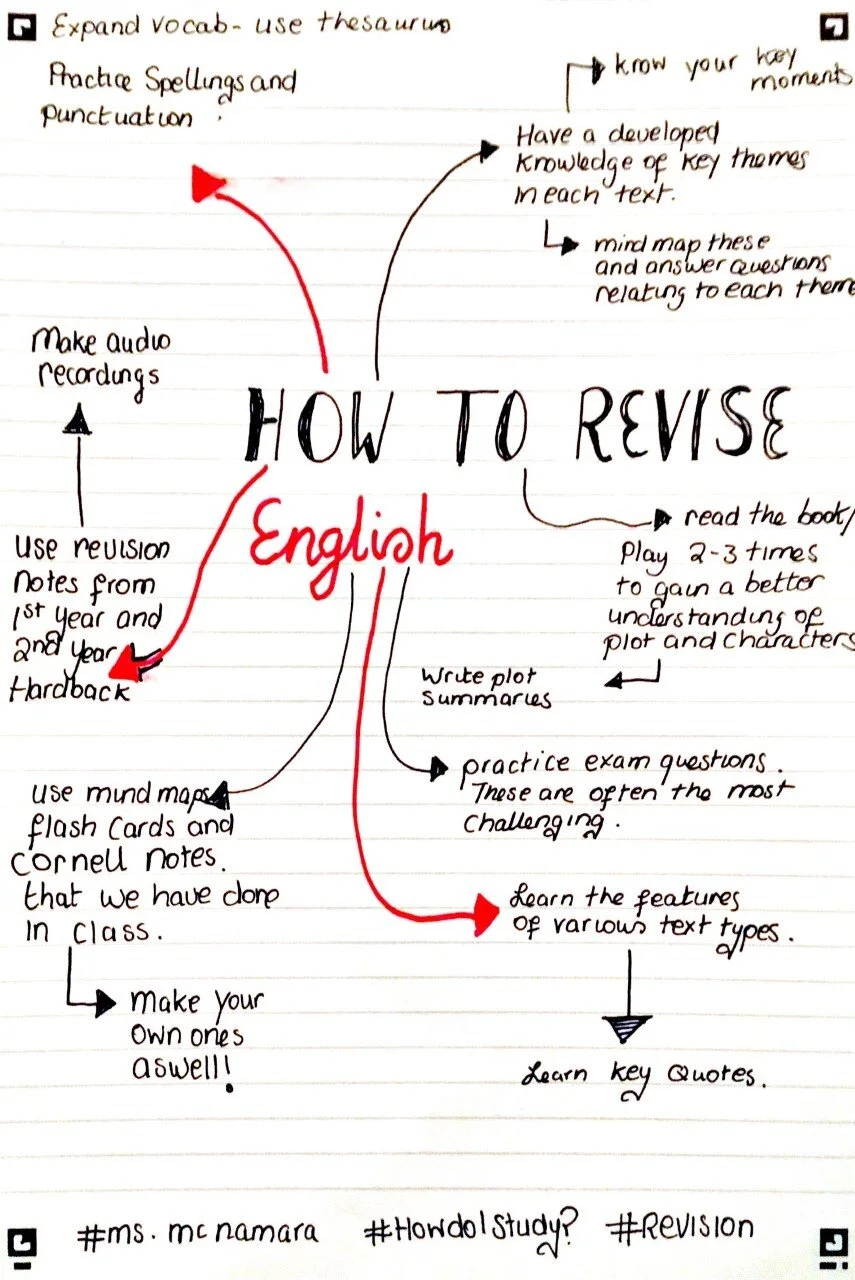 Expand vocab- use thesaurus
Practice Spellings and
punctuation.
know your key
moments
Have a developed
knowledge of key themes
in each text.
mind map these
and answer questions
relating to each theme
Make audio
recordings
HOW TO REVISE
English
use revision
notes from
1st year and
2nd year
Hardback
read the book/
Play 2-3 times
to gain a better
understanding of
plot and characters
Write plot
summaries
practice exam questions.
These are often the most
challenging.
use mind maps
flash cards and
cornell notes.
that we have done
in class.
make your
own ones
aswell!
Learn the features
of various text types.
Learn key Quotes.
#ms. mc namara #HowdoIStudy? #Revision